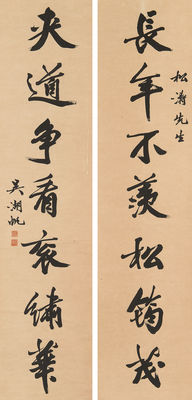 松濤先生
長年不羨松筠茂
夾道爭看衮繡華
吳湖帆